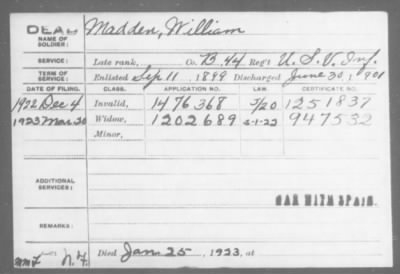 DEAD Madden, William
NAME OF SOLDIER:
SERVICE: Late rank, Co. B. 44, Reg't U.S.V. Inf.
TERM OF SERVICE: Enlisted Sep 11, 1899 Discharged June 30, 1901
DATE OF FILING. CLASS. APPLICATION NO. LAW. CERTIFICATE NO.
1922 Dec 4 Invalid, 1476368 1251837
1923 Mar 30 Widow, 1202689 947532
Minor,
ADDITIONAL SERVICES:
WAR WITH SPAIN.
REMARKS:
Died Jan 25, 1923, at